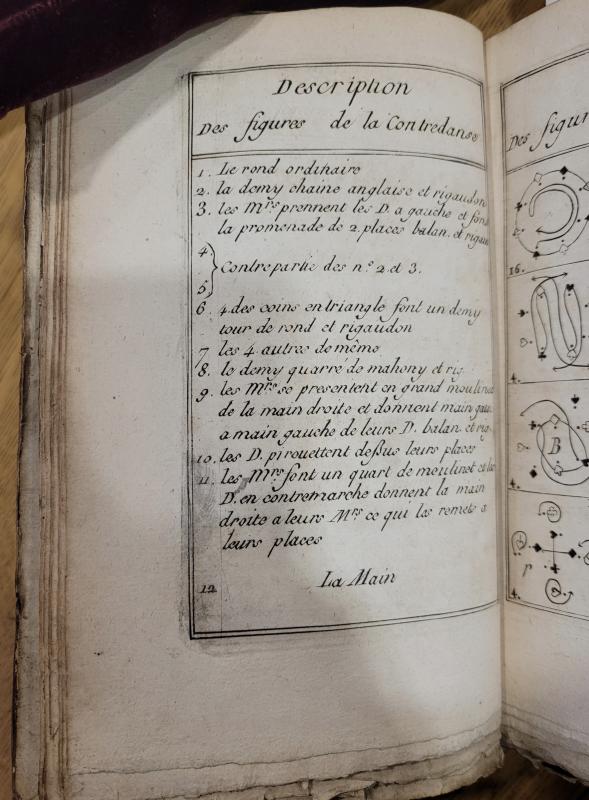 Description
Des figures de la Contredanse
1. Le rond ordinaire
2. la demy chaine anglaise et rigaudon
3. les Mrs prennent les D. a gauche et font
la promenade de 2. places balan. et rigau
4
Contrepartie des n.º 2. et 3.
5
6. 4. des coins en triangle font un demy
tour de rond et rigaudon
7. les 4. autres de même
8. le demy quarré de mahony et rig.
9. les Mrs se presentent en grand moulinet
de la main droite et donnent main gau
a main gauche de leurs D. balan. et rig.
10. les D. pirouettent deßus leurs places
11. les Mrs font un quart de moulinet et les
D. en contremarche donnent la main
droite a leurs Mrs ce qui les remets a
leurs places
12 La Main
Des figur
16.
4.
B
4.
4.